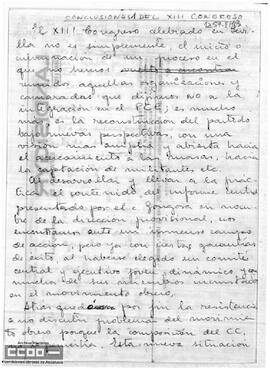 CONCLUSIONES DEL XIII CONGRESO
El XIII Congreso celebrado en Sevi
lla no es simplemente, el inicio o
de un proceso en el
que no hemos
reunidos aquellas organizaciones y
camaradas que dijimos NO a la
integración en el PCE, es mucho
mas, es la reconstrucción del partido
bajo nuevas perspectivas, con una
visión mas amplia y abierta hacia
el acercamiento a las masas, hacia
la captación de militantes etc.
Al desarrollar y llevar a la prác
tica el contenido del informe central
presentado por el c. en nom
bre de la dirección provisional, nos
encontramos ante un inmenso campo
de acción, pero ya con ciertas garantías
de exito, al haberse elegido un comite
central y ejecutivo joven, dinámico, y con
muchos de sus miembros inmersos
en el movimiento obrero.
Atrás por fin la resistencia
a no discutir problemas del movimien
to obrero porque la composición del CC,
Esta nueva situación
CCOO